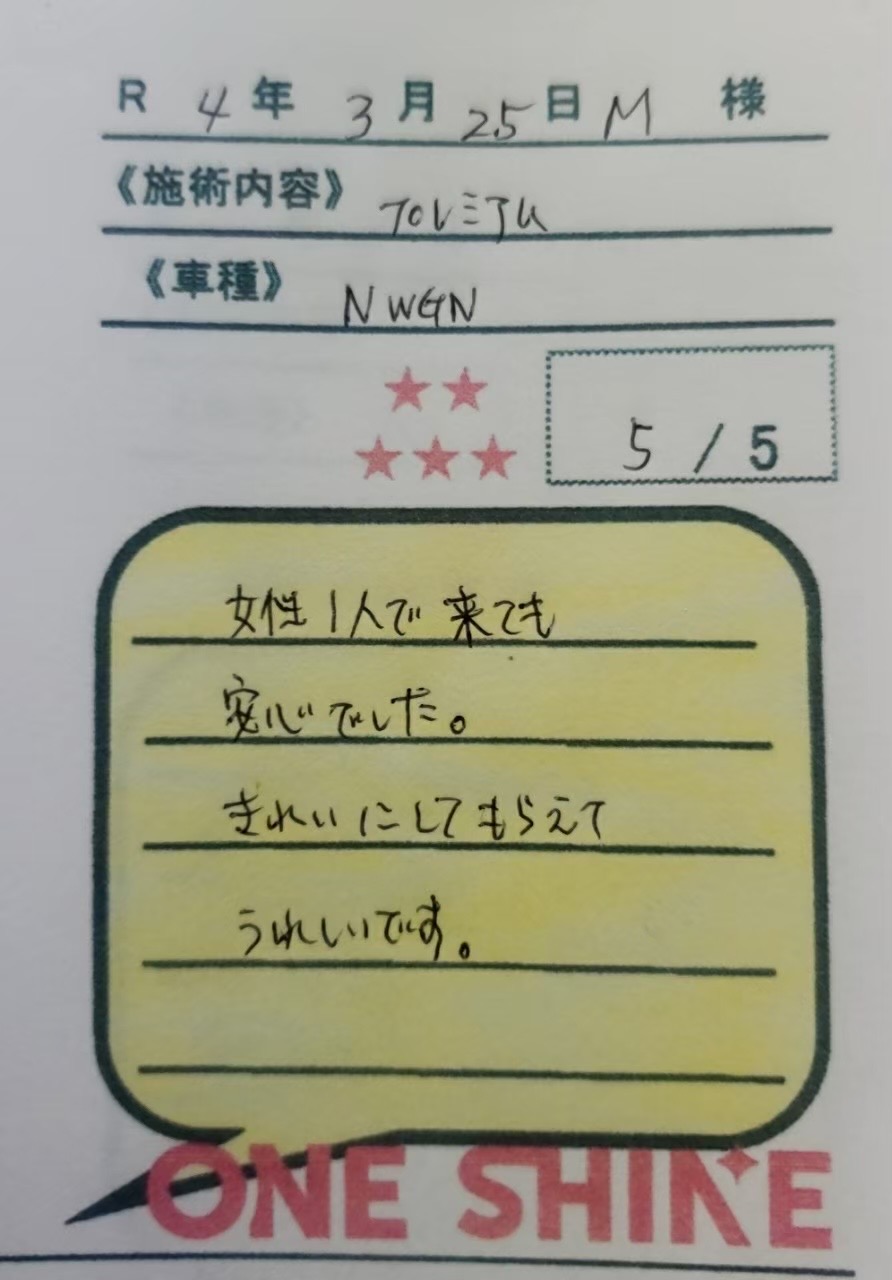 R 4年 3月 25日 M 様
《施術内容》 プレミアム
《車種》 NWGN
5 / 5
女性1人で来ても
安心でした。
きれいにしてもらえて
うれしいです。
ONE SHINE